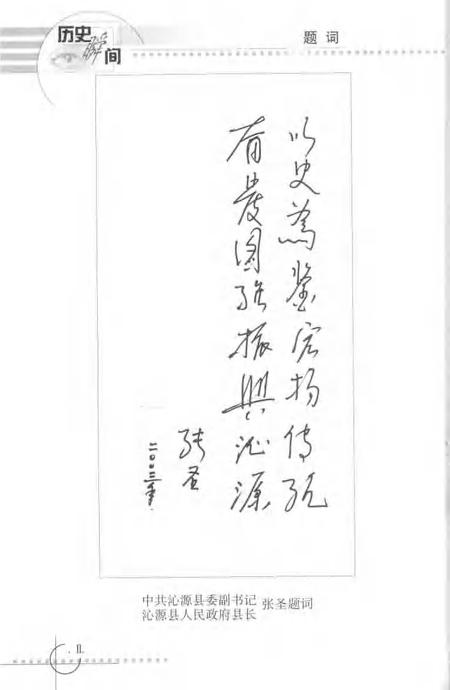 历史瞬间
题词
以史为鉴宏扬传统
奋发图强振兴沁源
张圣
二〇〇三年
中共沁源县委副书记
沁源县人民政府县长
张圣题词
·Ⅱ·